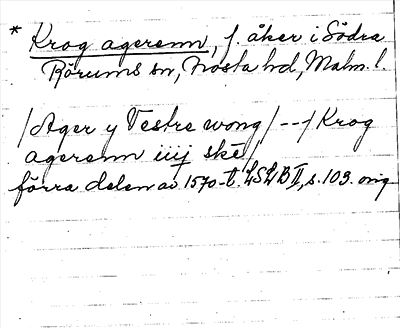 * Krog agerenn, f. åker i Södra
Rörums sn, Frosta hd, Malm. l.
/Ager y Vestre wong/ --/ Krog
agerenn iiij skē/
förra delen av 1570-t. LSLB II, s. 103. orig.